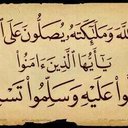 للَّهَ وَمَلَٰٓئِكَتَهُۥ يُصَلُّونَ عَلَى ٱ
يَٰٓأَيُّهَا ٱلَّذِينَ ءَامَنُوا۟
لُّوا۟ عَلَيْهِ وَسَلِّمُوا۟ تَسْ